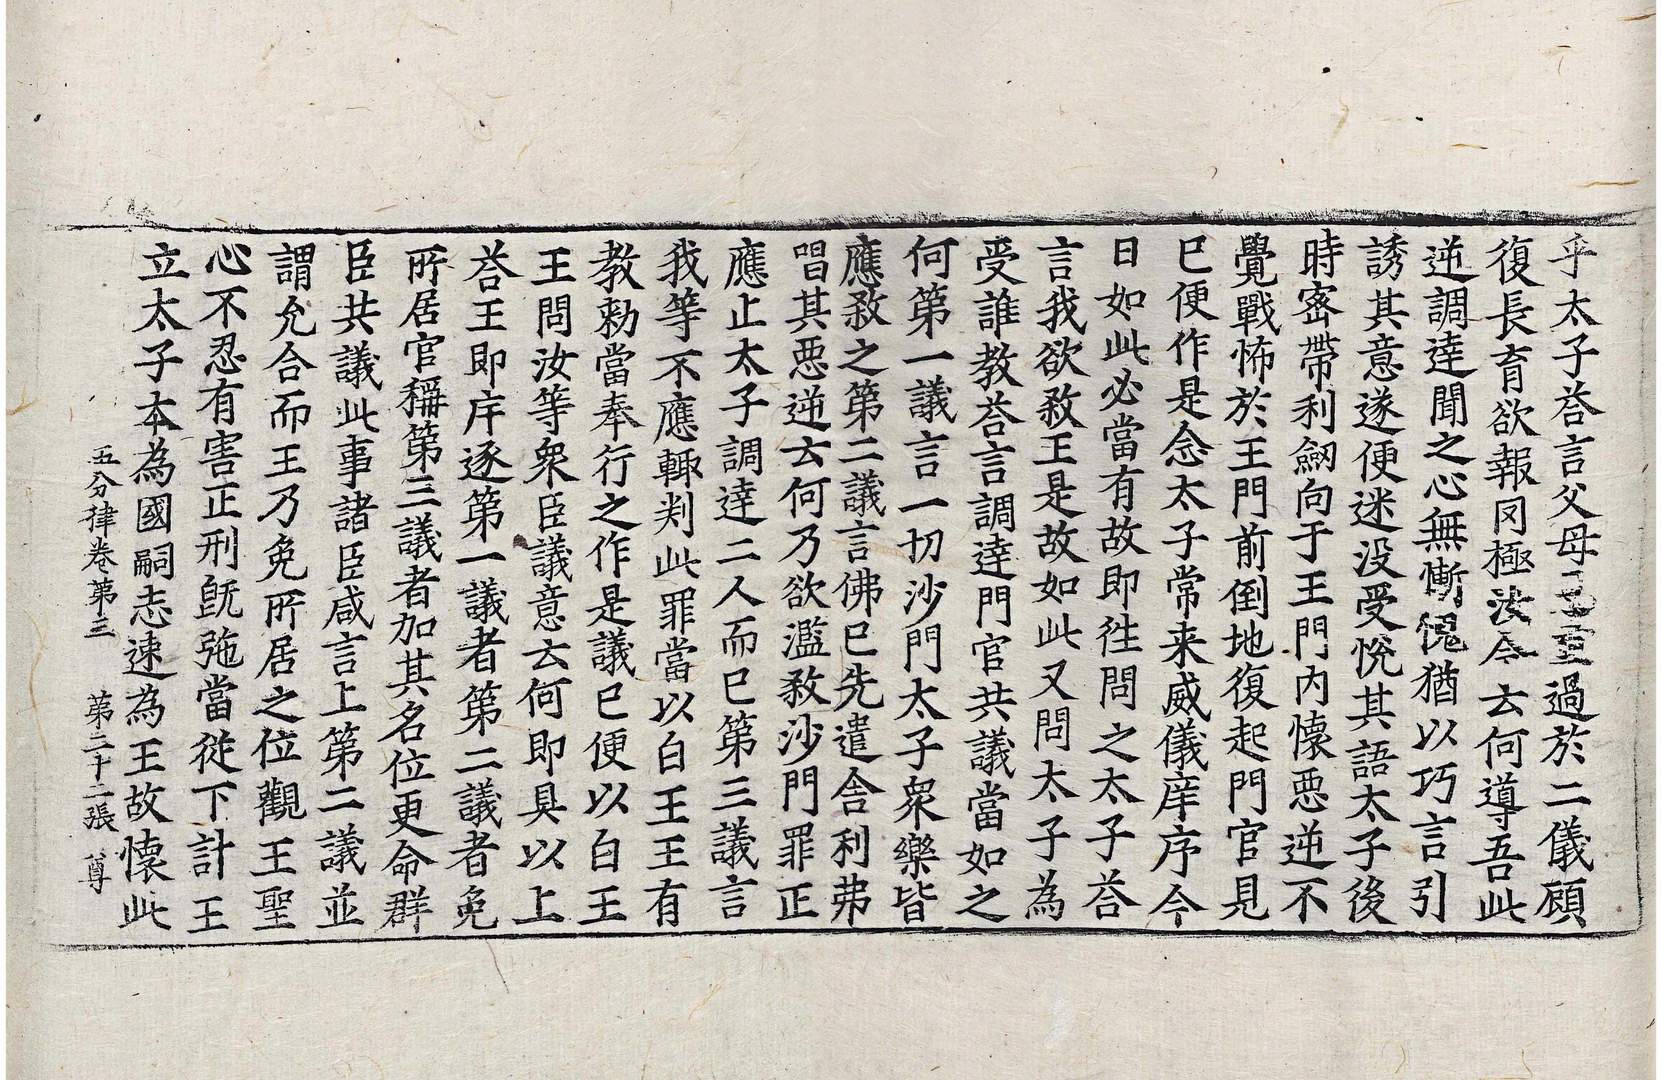 乎太子荅言父母恩重過於二儀顧
復長育欲報罔極汝今云何導吾此
逆調達聞之心無慚愧猶以巧言引
誘其意遂便迷没受悅其語太子後
時密帶利劒向于王門內懷惡逆不
覺戰怖於王門前倒地復起門官見
已便作是念太子常来威儀庠序今
日如此必當有故即往問之太子荅
言我欲煞王是故如此又問太子為
受誰教荅言調達門官共議當如之
何第一議言一切沙門太子衆樂皆
應煞之第二議言佛已先遣舍利弗
唱其惡逆云何乃欲濫煞沙門罪正
應止太子調達二人而已第三議言
我等不應輙判此罪當以白王王有
教勑當奉行之作是議已便以白王
王問汝等衆臣議意云何即具以上
荅王即庠逐第一議者第二議者免
所居官稱第三議者加其名位更命群
臣共議此事諸臣咸言上第二議並
謂允合而王乃免所居之位觀王聖
心不忍有害正刑旣弛當從下計王
立太子本為國嗣志速為王故懷此
五分律卷第三　第二十二張　尊